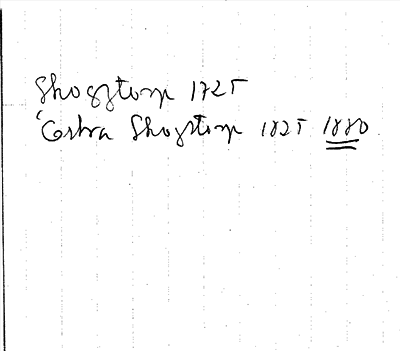 Skogstorp 1725
Östra Skogstorp 1825 1880